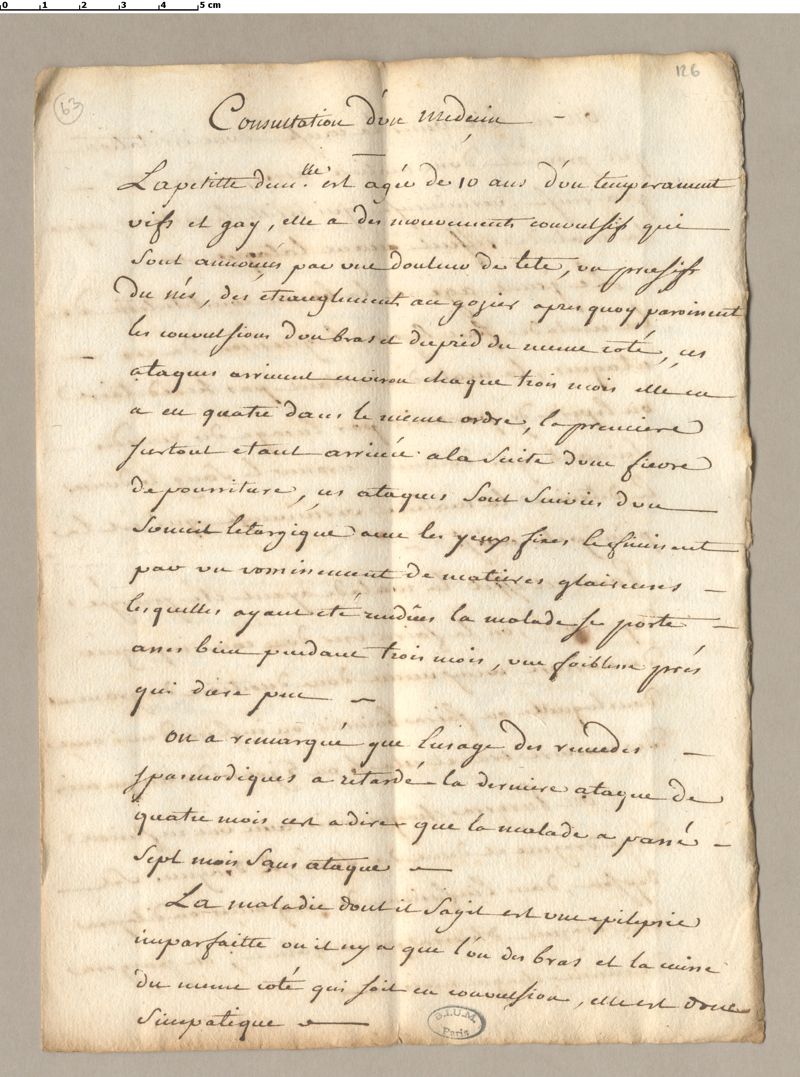 0 1 2 3 4 5 cm
63
126
Consultation d'un medecin
La petitte dem.lle est agée de 10 ans d'un temperament
vifs et gay, elle a des mouvements convulsifs qui
sont annoncés par une douleur de tete, un
du nés, des étranglements au gozier apres quoy paroissent
les convulsions d'un bras et du pied du meme coté, ces
ataques arrivent environ chaque trois mois elle en
a eu quatre dans le meme ordre, la premiere
surtout etant arrivée a la suite d'une fievre
de pourriture, ces ataques sont suivies d'un
someil letargique avec les yeux fixes et finissent
par un vomissement de matieres glaireuses
lesquelles ayant eté rendües la malade se porte
asses bien pendant trois mois, une foiblesse prés
qui dure peu
on a remarqué que l'usage des remedes
spasmodiques a retardé la derniere ataque de
quatre mois cest a dire que la malade a passé
sept mois sans ataque
La maladie dont il sagit est une epilepsie
imparfaitte ou il ny a que l'un des bras et la cuisse
du meme coté qui soit en convulsion, elle est donc
simpatique
B.I.U.M.
Paris